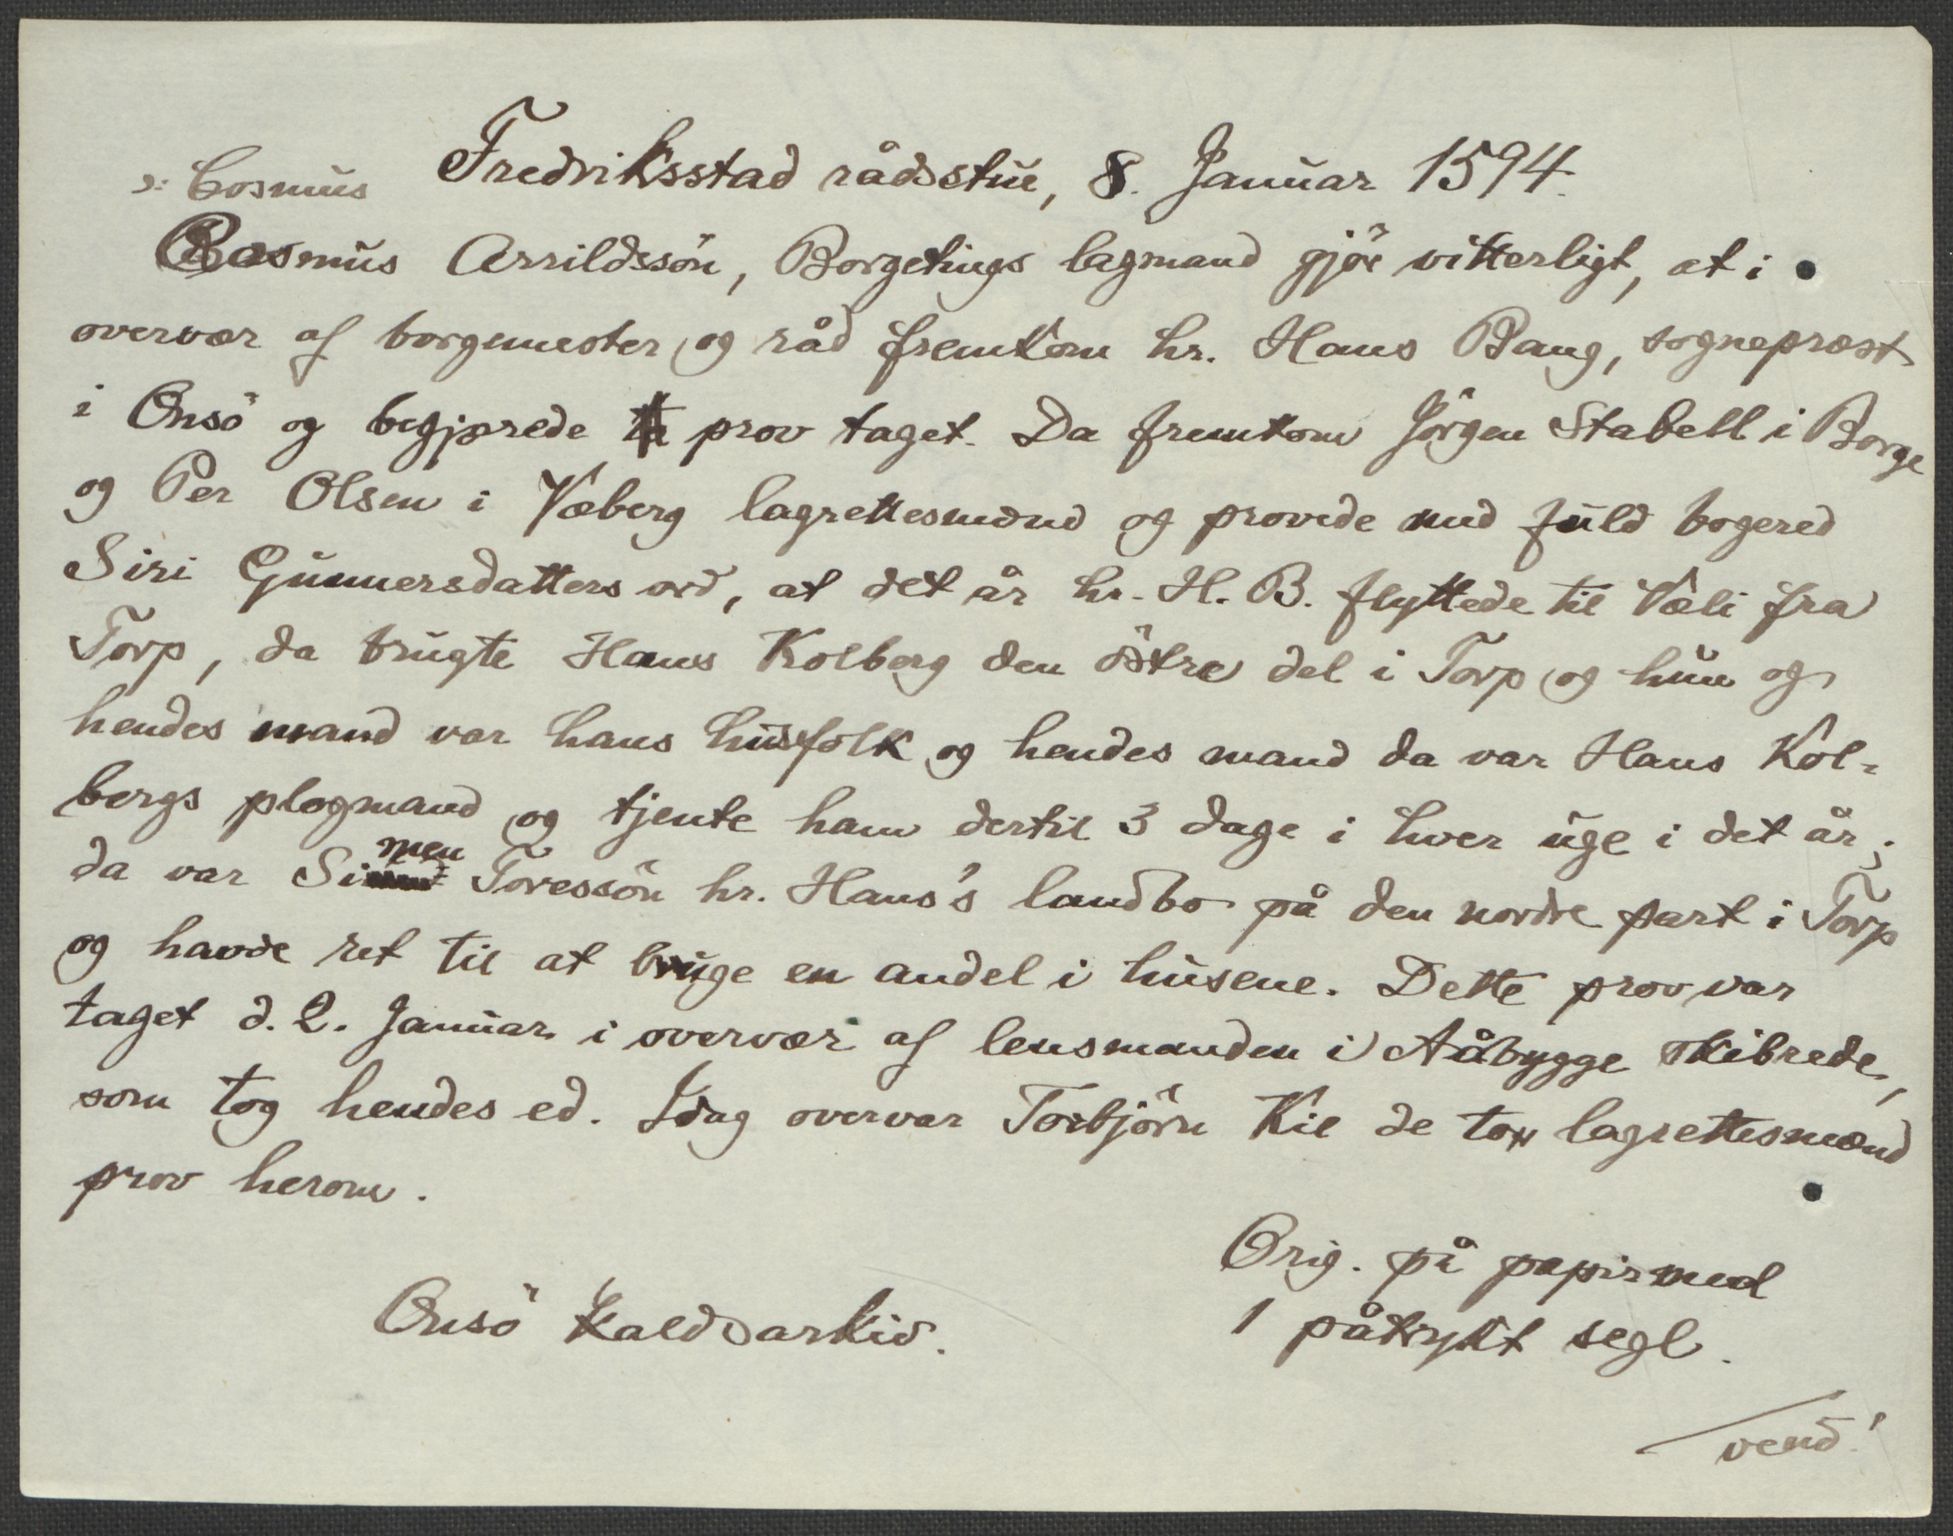 ɔ: Cosmus
Fredriksstad rådsstue, 8. Januar 1594.
Rasmus Arrildssön, Borgetings lagmand gjör vitterligt, at i
overvær af borgemester og råd fremkom hr. Hans Bang, sogneprest
i Onsö og begjærede prov taget. Da fremkom Jörgen Stabell i Borge
og Per Olsen i Væberg lagrettesmænd og provede med fuld bogered
Siri Gunnersdatters ord, at det år hr. H. B. flyttede til Væli fra
Torp, da brugte Hans Kolberg den östre del i Torp og hun og
hendes mand var hans husfolk og hendes mand da var Hans Kol-
bergs plogmand og tjente ham dertil 3 dage i hver uge i det år;
da var Simen Toressön hr. Hans's landbo på den nordre part i Torp
og havde ret til at bruge en andel i husene. Dette prov var
taget d. 2. Januar i overvær af lensmanden i Aåbygge skibrede,
som tog hendes ed. Idag overvar Torbjörn Kil de to lagrettesmænd
prov herom.
Orig. på papir med
1 påtrykt segl.
Onsö kaldsarkiv.
vend!